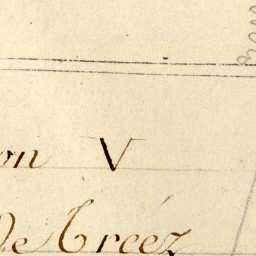 on V
De Creéz